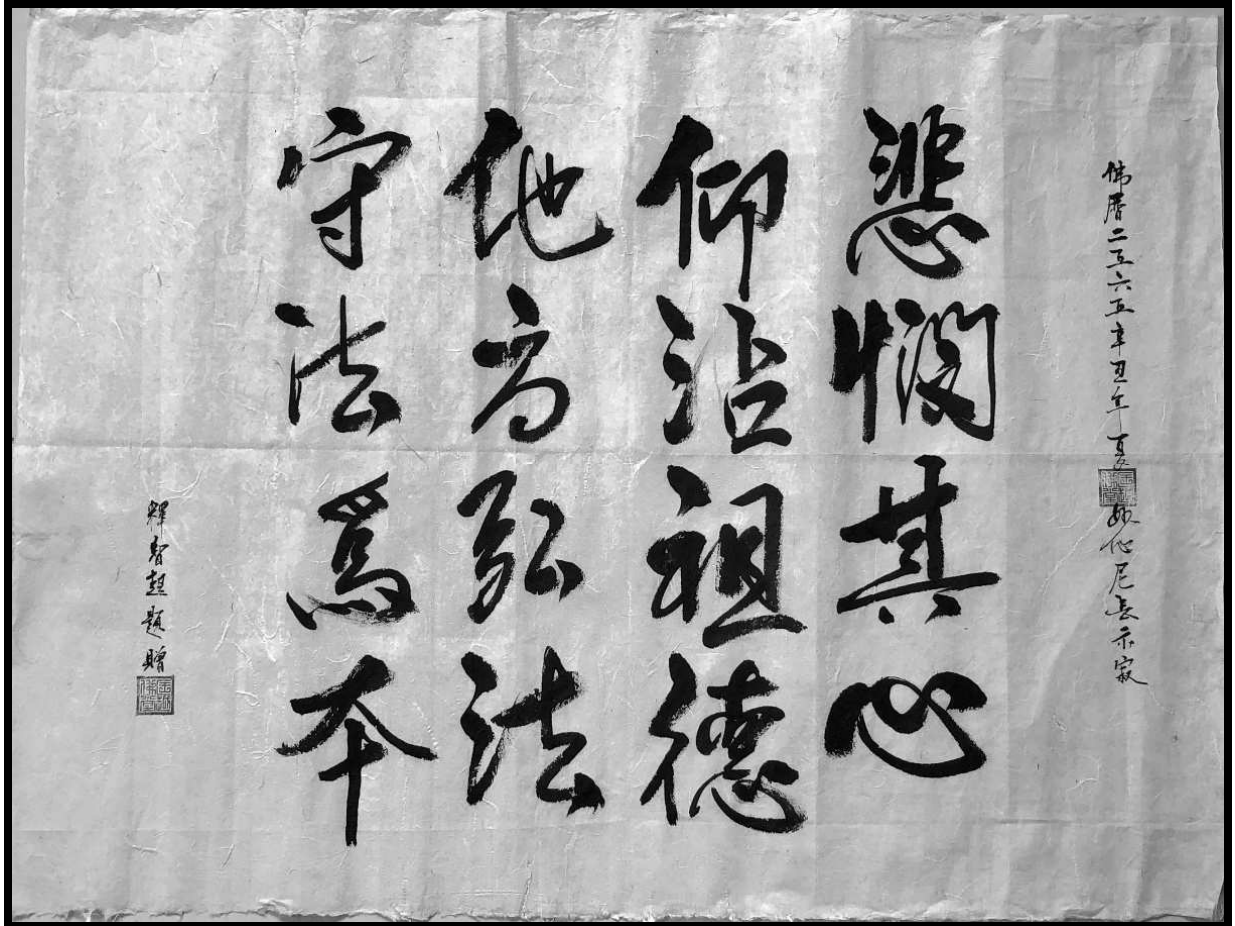 佛曆二五六五辛丑年夏 妙他尼長示寂
悲憫其心
仰沾祖德
他方弘法
守法為本
釋智超題贈